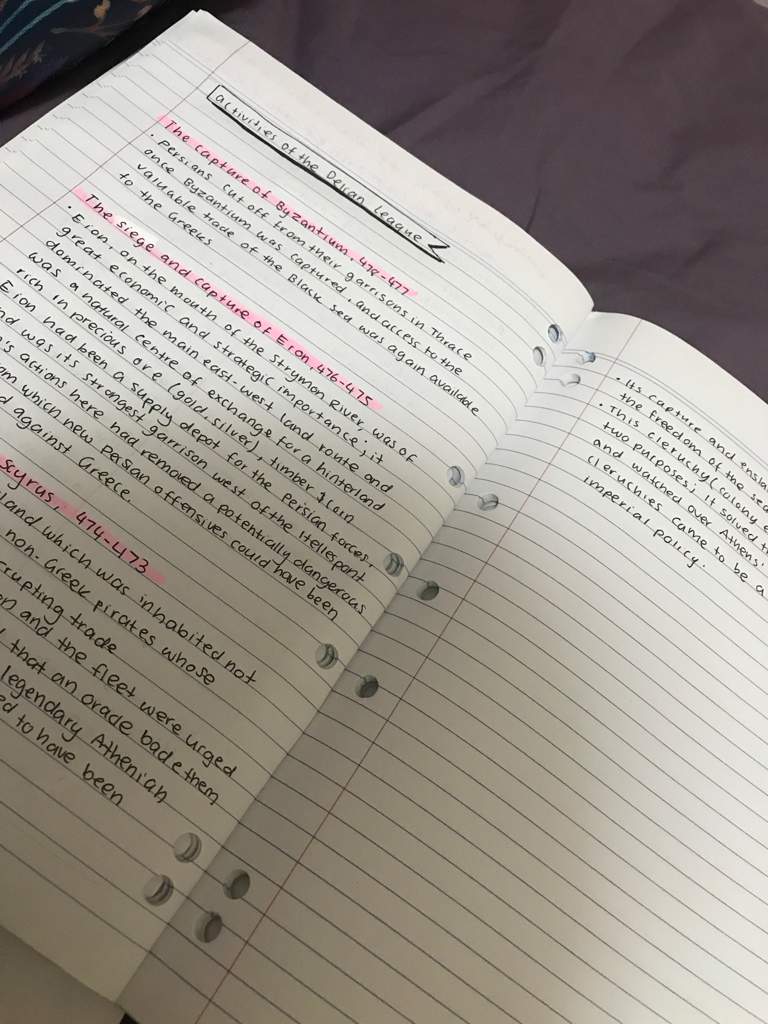 activities of the Delian League
The capture of Byzantium, 478-477
• Persians cut off from their garrisons in Thrace
once Byzantium was captured, and access to the
valuable trade of the Black sea was again available
to the Greeks
The siege and capture of Eion, 476-475
• Eion, on the mouth of the Strymon River, was of
great economic and strategic importance; it
dominated the main east-west land route and
was a natural centre of exchange for a hinterland
rich in precious ore (gold, silver), timber & coin
Eion had been a supply depot for the Persian forces,
and was its strongest garrison west of the Hellespont
actions here had removed a potentially dangerous
which new Persian offensives could have been
against Greece.
Scyrus, 474-473
which was inhabited not
non-Greek pirates whose
trade
and the fleet were urged
that an oracle bade them
legendary Athenian
to have been
• Its capture and
the freedom of the
• This cleruchy (colony
two purposes; it solved
and watched over Athens'
cleruchies came to be a
imperial policy.